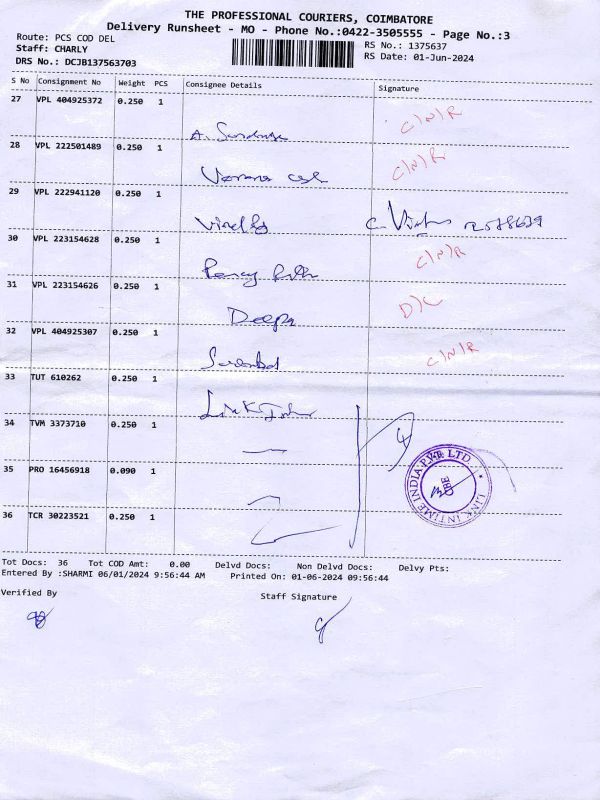 THE PROFESSIONAL COURIERS, COIMBATORE
Delivery Runsheet - MO - Phone No.:0422-3505555 - Page No.:3
Route: PCS COD DEL
RS No.: 1375637
Staff: CHARLY
RS Date: 01-Jun-2024
DRS No.: DCJB137563703
S No Consignment No Weight PCS Consignee Details Signature
27 VPL 404925372 0.250 1
C/N/R
28 VPL 222501489 0.250 1
C/N/R
29 VPL 222941120 0.250 1
30 VPL 223154628 0.250 1
C/N/R
31 VPL 223154626 0.250 1
Deepa D/L
32 VPL 404925307 0.250 1
C/N/R
33 TUT 610262 0.250 1
Link
34 TVM 3373710 0.250 1
35 PRO 16456918 0.090 1
LINK INTIME INDIA PVT LTD
CBE
36 TCR 30223521 0.250 1
Tot Docs: 36 Tot COD Amt: 0.00 Delvd Docs: Non Delvd Docs: Delvy Pts:
Entered By :SHARMI 06/01/2024 9:56:44 AM Printed On: 01-06-2024 09:56:44
Verified By Staff Signature